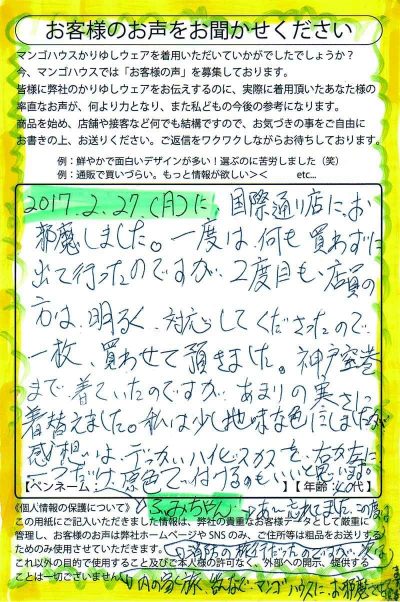 お客様のお声をお聞かせください
マンゴハウスかりゆしウェアを着用いただいていかがでしたでしょうか？
今、マンゴハウスでは「お客様の声」を募集しております。
皆様に弊社のかりゆしウェアをお伝えするのに、実際に着用頂いたあなた様の
率直なお声が、何より力となり、また私どもの今後の参考になります。
商品を始め、店舗や接客など何でも結構ですので、お気づきの事をご自由に
お書きの上、お送りください。ご返信をワクワクしながらお待ちしております。
例：鮮やかで面白いデザインが多い！選ぶのに苦労しました（笑）
例：通販で買いづらい。もっと情報が欲しい＞＜ etc...
2017.2.27.(月)に、国際通り店にお
邪魔しました。一度は、何も買わずに
出て行ったのですが、2度目も、店員の
方は、明るく、対応してくださったので、
一枚、買わせて頂きました。神戸空港
まで、着ていたのですが、あまりの寒さに
着替えました。私は少し地味な色にしましたが、
感想は、デッカいハイビスカスを、右か左に
一つだけ、原色で付けるのもいいと思います。
【ペンネーム： ふみちゃん 】【年齢： 代】
《個人情報の保護について》
この用紙にご記入いただきました情報は、弊社の貴重なお客様データとして厳重に
管理し、お客様のお声は弊社ホームページやSNSのみ、ご住所等は粗品をお送りする
ためのみ使用させていただきます。
これ以外の目的で使用すること及びご本人様の許可なく、外部への開示、提供する
ことは一切ございません。
の旅行だったのですが、
マンゴハウスに、お邪魔